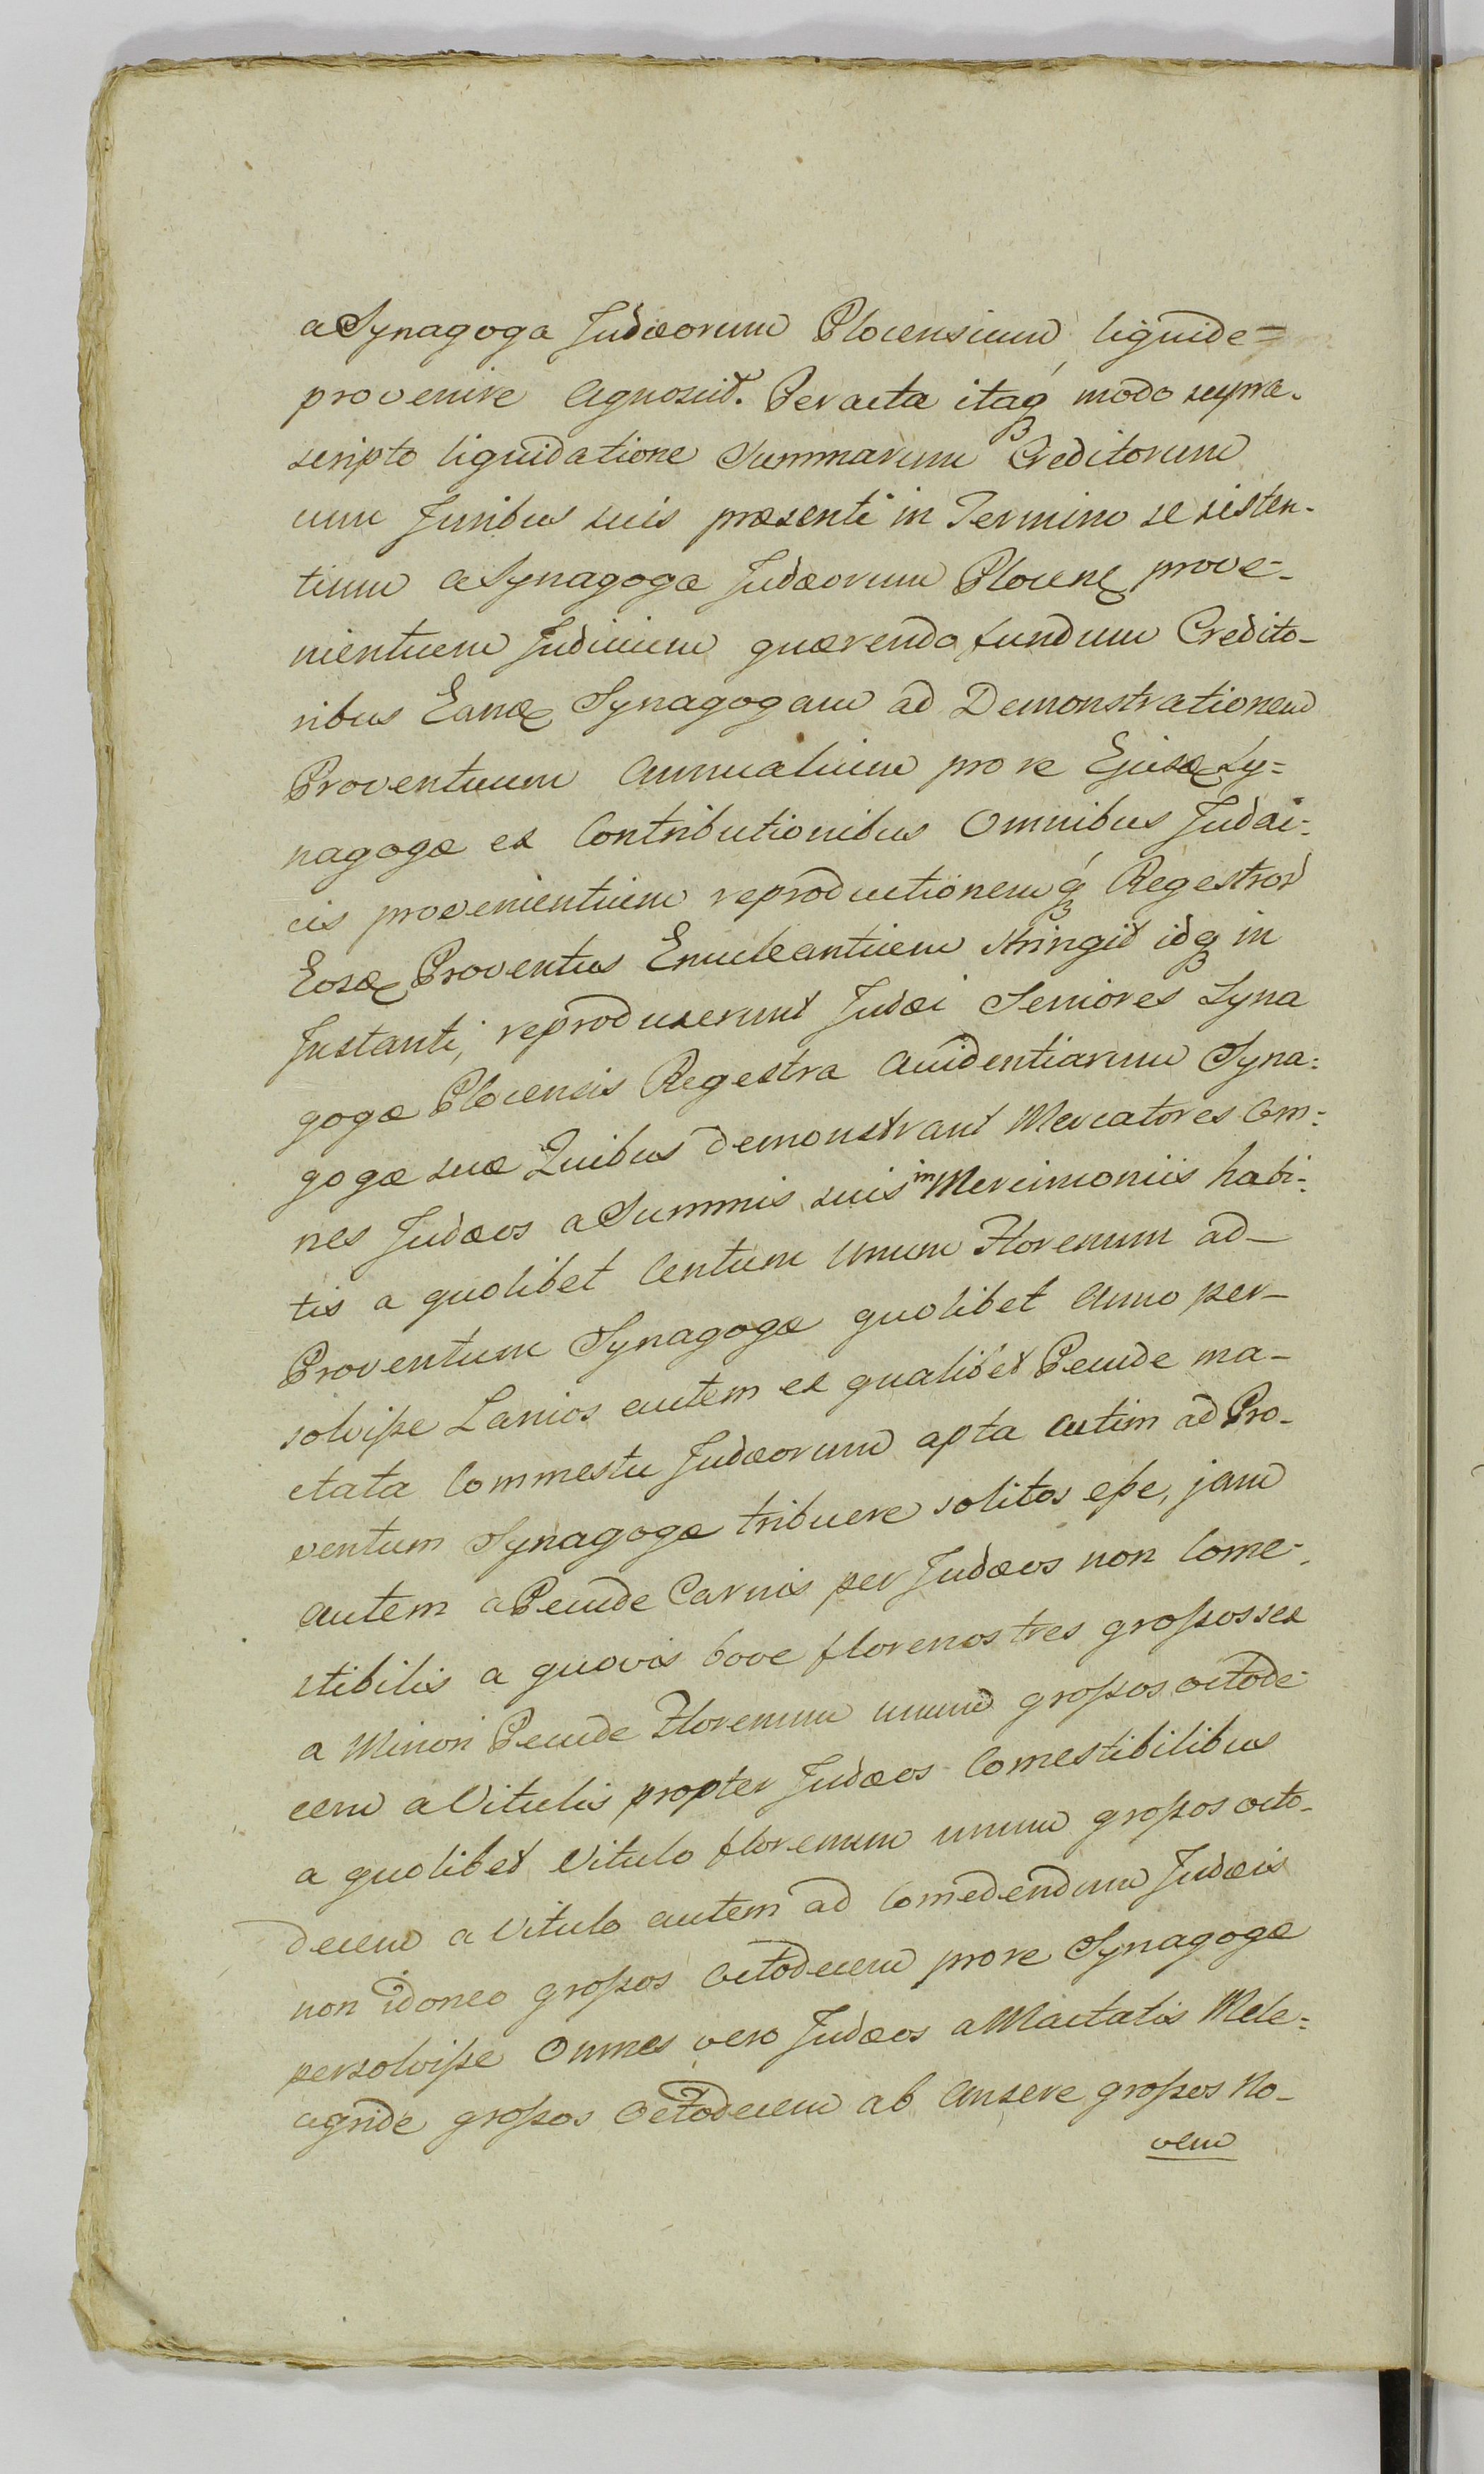 a Synagoga Judæorum Plocensium liquide=
provenire Agnoscit. Peracta itaq́ꝫ modo supra-
scripto liquidatione Summarum Creditorum
cum Juribus suis præsenti in Termino se sisten-
tium a Synagoga Judæorum Plocenę prove-
nientium Judicium quærendo fundum Credito-
ribus Eandę Synagogam ad Demonstrationem
Proventuum Annualium pro re Ejusdę Sy=
nagogæ ex Contributionibus Omnibus Judai=
cis provenientium reproductionemq́ꝫ Regestror
Eosdę Proventus Enucleantium stringit idqꝫ in
Instanti, reproduxerunt Judæi Seniores Syna
gogæ Plocensis Regestra Accidentiarum Syna=
gogæ suæ Quibus demonstrant Mercatores Om=
nes Judæos a Summis suis in Mercimoniis habi=
tis a quolibet Centum Unum Florenum ad-
Proventum Synagogæ quolibet Anno per-
solviſse Lanios autem ex qualibet Pecude ma-
ctata Commestu Judæorum apta autim ad Pro-
ventum Synagogæ tribuere solitos eſse, jam
autem a Pecude Carnis per Judæos non Come-
stibilis a quovis bove florenos tres groſsos sex
a Minori Pecude Florenum unum groſsos octode-
cem a Vitulis propter Judæos Comestibilibus
a quolibet Vitulo florenum unum groſsos octo-
decem a Vitulo autem ad Comedendum Judæis
non idoneo groſsos Octodecem pro re Synagogæ
persolviſse Omnes vero Judæos a Mactatis Mele=
agride groſsos Octodecem ab Ansere groſsos No-
vem